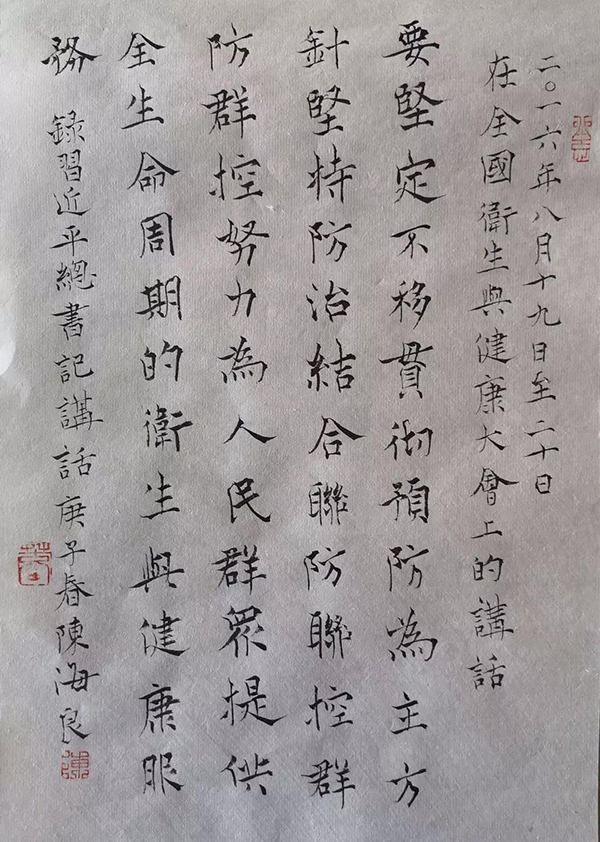 二〇一六年八月十九日至二十日
在全國衛生與健康大會上的講話
要堅定不移貫彻預防為主方
針堅持防治結合聯防聯控群
防群控努力為人民群眾提供
全生命周期的衛生與健康服
務
録習近平總書記講話庚子春陳海良